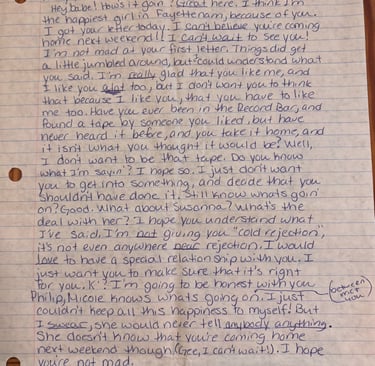 Hey babe! How's it goin'? Great here. I think I'm
the happiest girl in Fayettenam, because of you.
I got your letter today. I can't believe you're coming
home next weekend!! I can't wait to see you!
I'm not mad at your first letter. Things did get
a little jumbled around, but I could understand what
you said. I'm really glad that you like me, and
I like you alot too, but I don't want you to think
that because I like you, that you have to like
me too. Have you ever been in the Record Bar, and
found a tape by someone you liked, but have
never heard it before, and you take it home, and
it isn't what you thought it would be? Well,
I don't want to be that tape. Do you know
what I'm sayin'? I hope so. I just don't want
you to get into something, and decide that you
shouldn't have done it. Still know whats goin'
on? Good. What about Susanna? What's the
deal with her? I hope you understand what
I've said. I'm not giving you "cold rejection",
it's not even anywhere near rejection. I would
love to have a special relationship with you. I
just want you to make sure that it's right
for you. 'K'? I'm going to be honest with you
between me & you
Philip, Nicole knows what's going on. I just
couldn't keep all this happiness to myself! But
I swear, she would never tell anybody anything.
She doesn't know that you're coming home
next weekend though (Gee, I can't wait!). I hope
you're not mad.